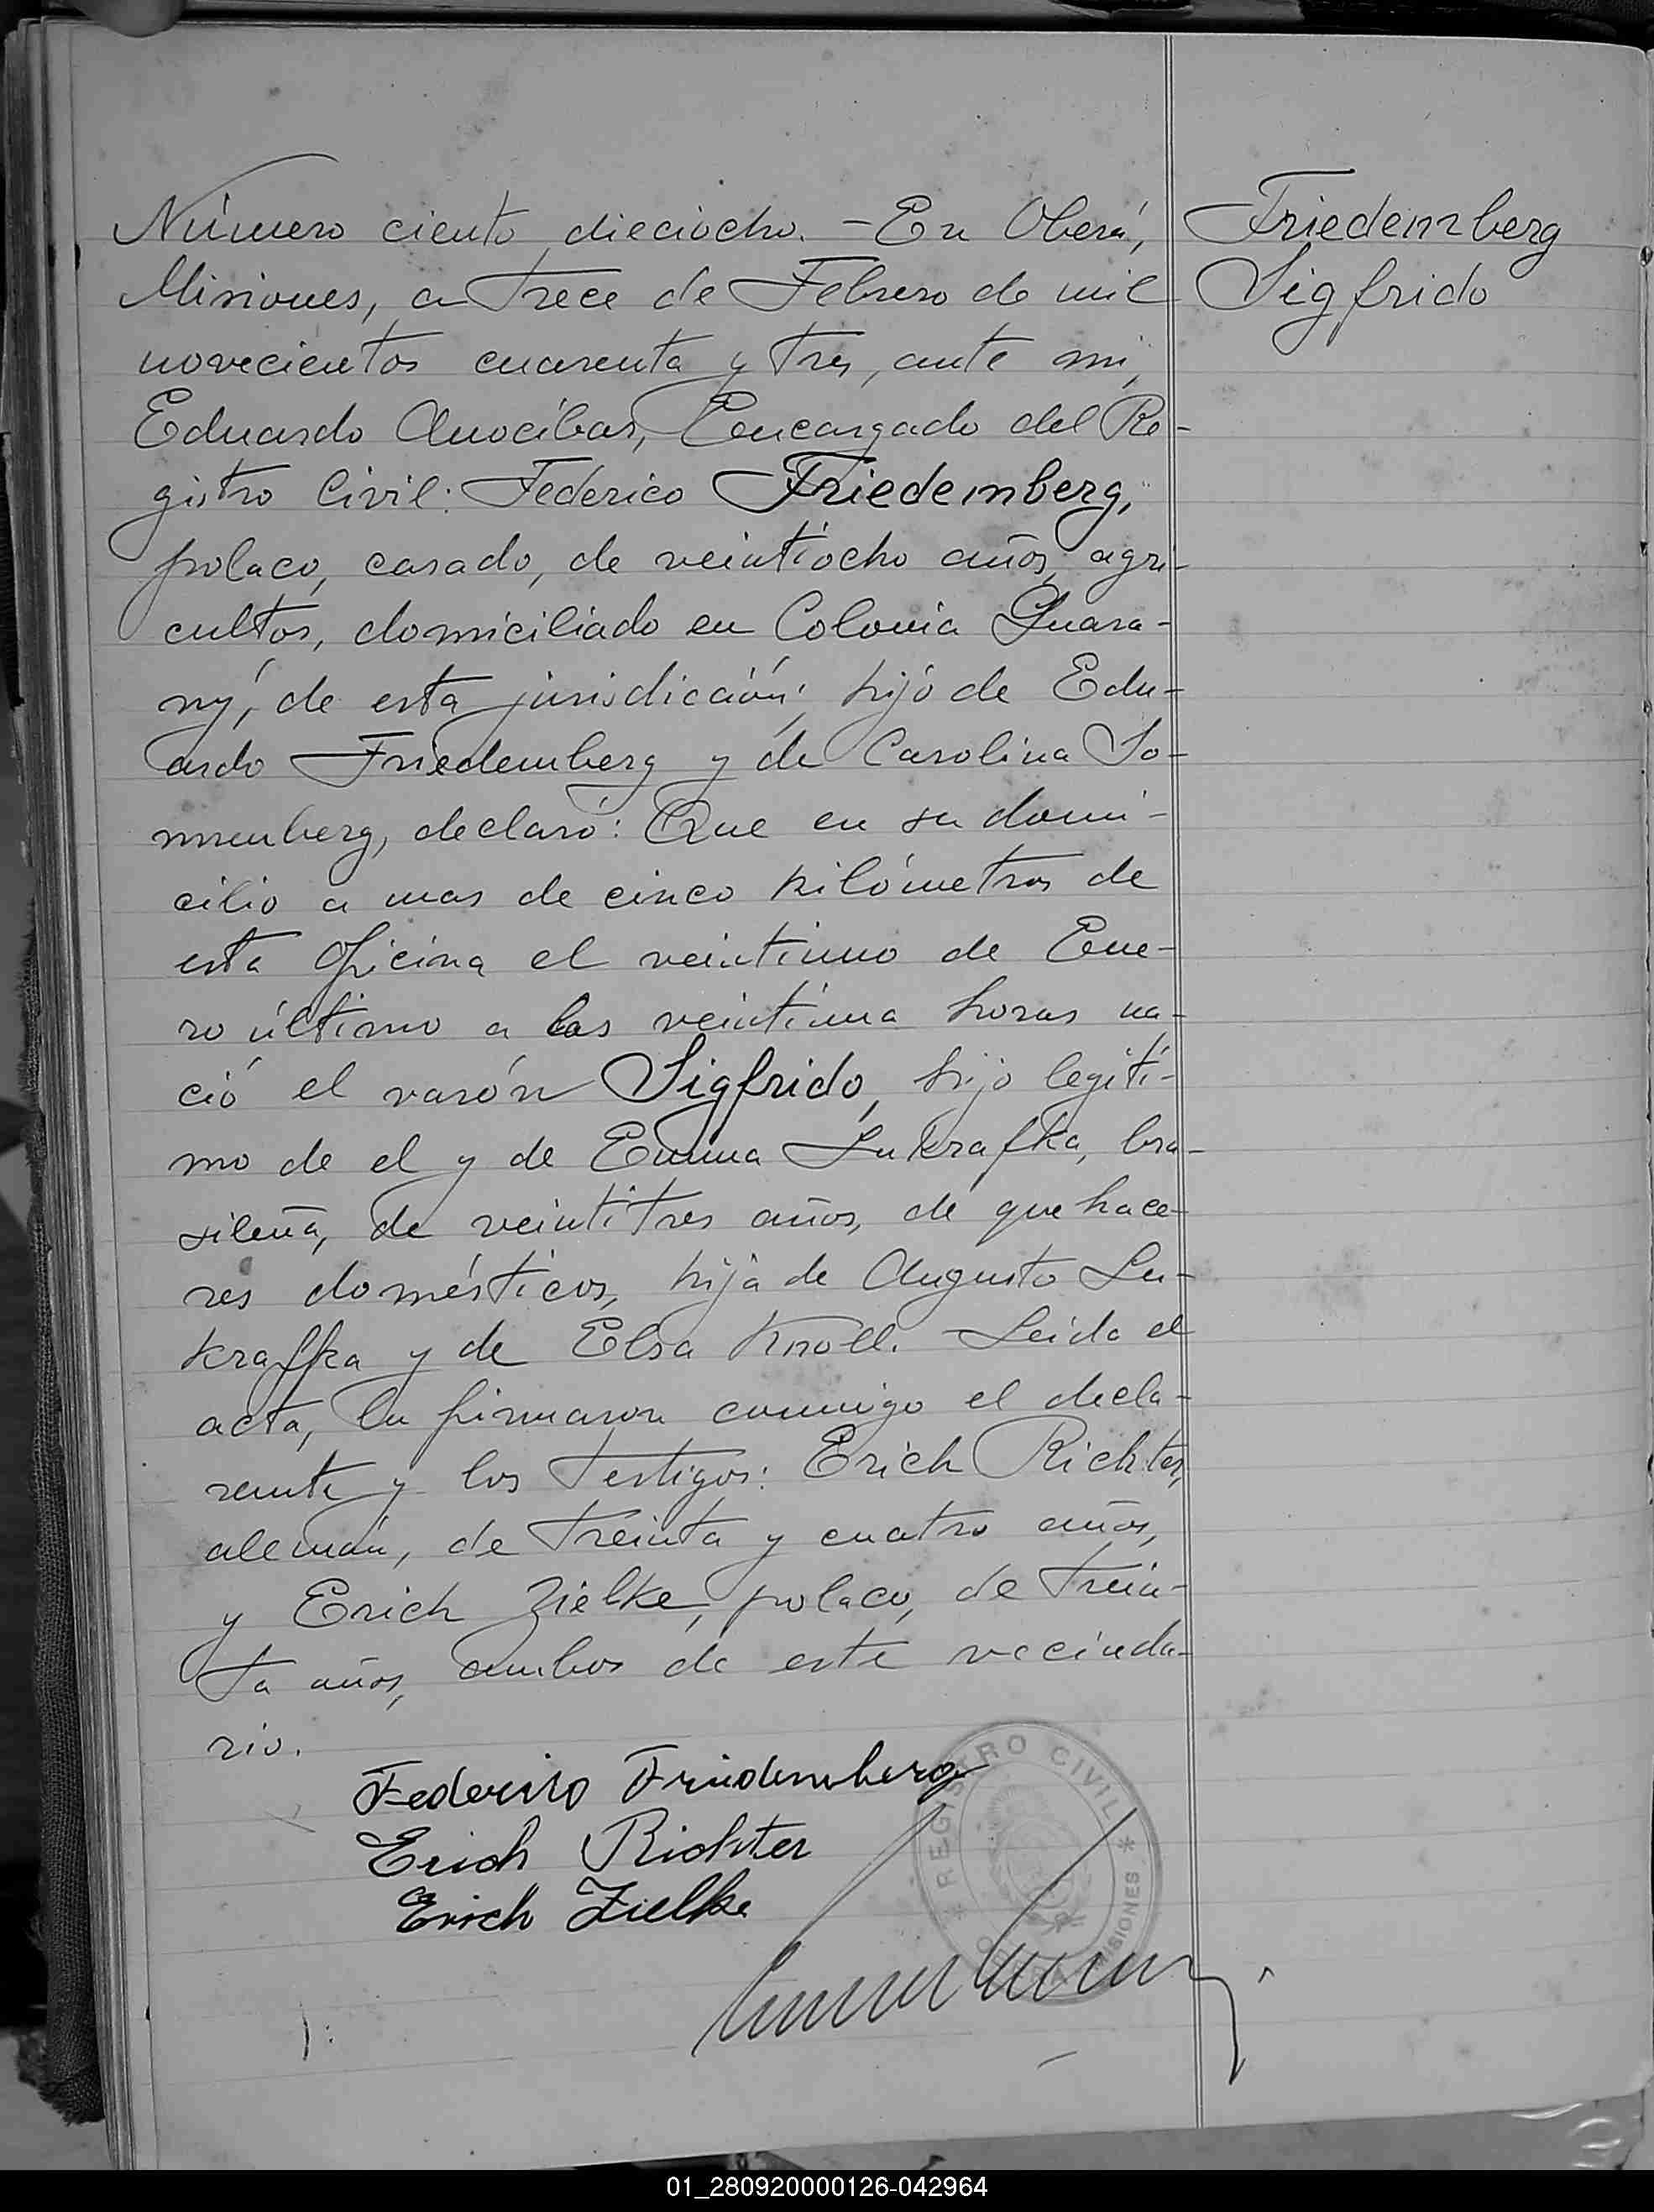 Número ciento dieciocho. - En Oberá,
Misiones, a trece de Febrero de mil
novecientos cuarenta y tres, ante mi,
Eduardo Anocíbar, Encargado del Re-
gistro Civil: Federico Friedemberg,
polaco, casado, de veintiocho años, agri-
cultor, domiciliado en Colonia Guara-
ny, de esta jurisdicción, hijo de Edu-
ardo Friedemberg y de Carolina So-
nnenberg, declaró: Que en su domi-
cilio a mas de cinco kilómetros de
esta Oficina el veintiuno de Ene-
ro último a las veintiuna horas na-
ció el varón Sigfrido, hijo legíti-
mo de el y de Emma Lukrafka, bra-
sileña, de veintitres años, de quehace-
res domésticos, hija de Augusto Lu-
kraffka y de Elsa Knoll. Leida el
acta, la firmaron conmigo el decla-
rante y los testigos: Erich Richter,
alemán, de treinta y cuatro años,
y Erich Zielke, polaco, de trein-
ta años, ambos de este vecinda-
rio.
Friedemberg
Sigfrido
Federico Friedemberg
Erich Richter
Erich Zielke
REGISTRO CIVIL
MISIONES
01_280920000126-042964